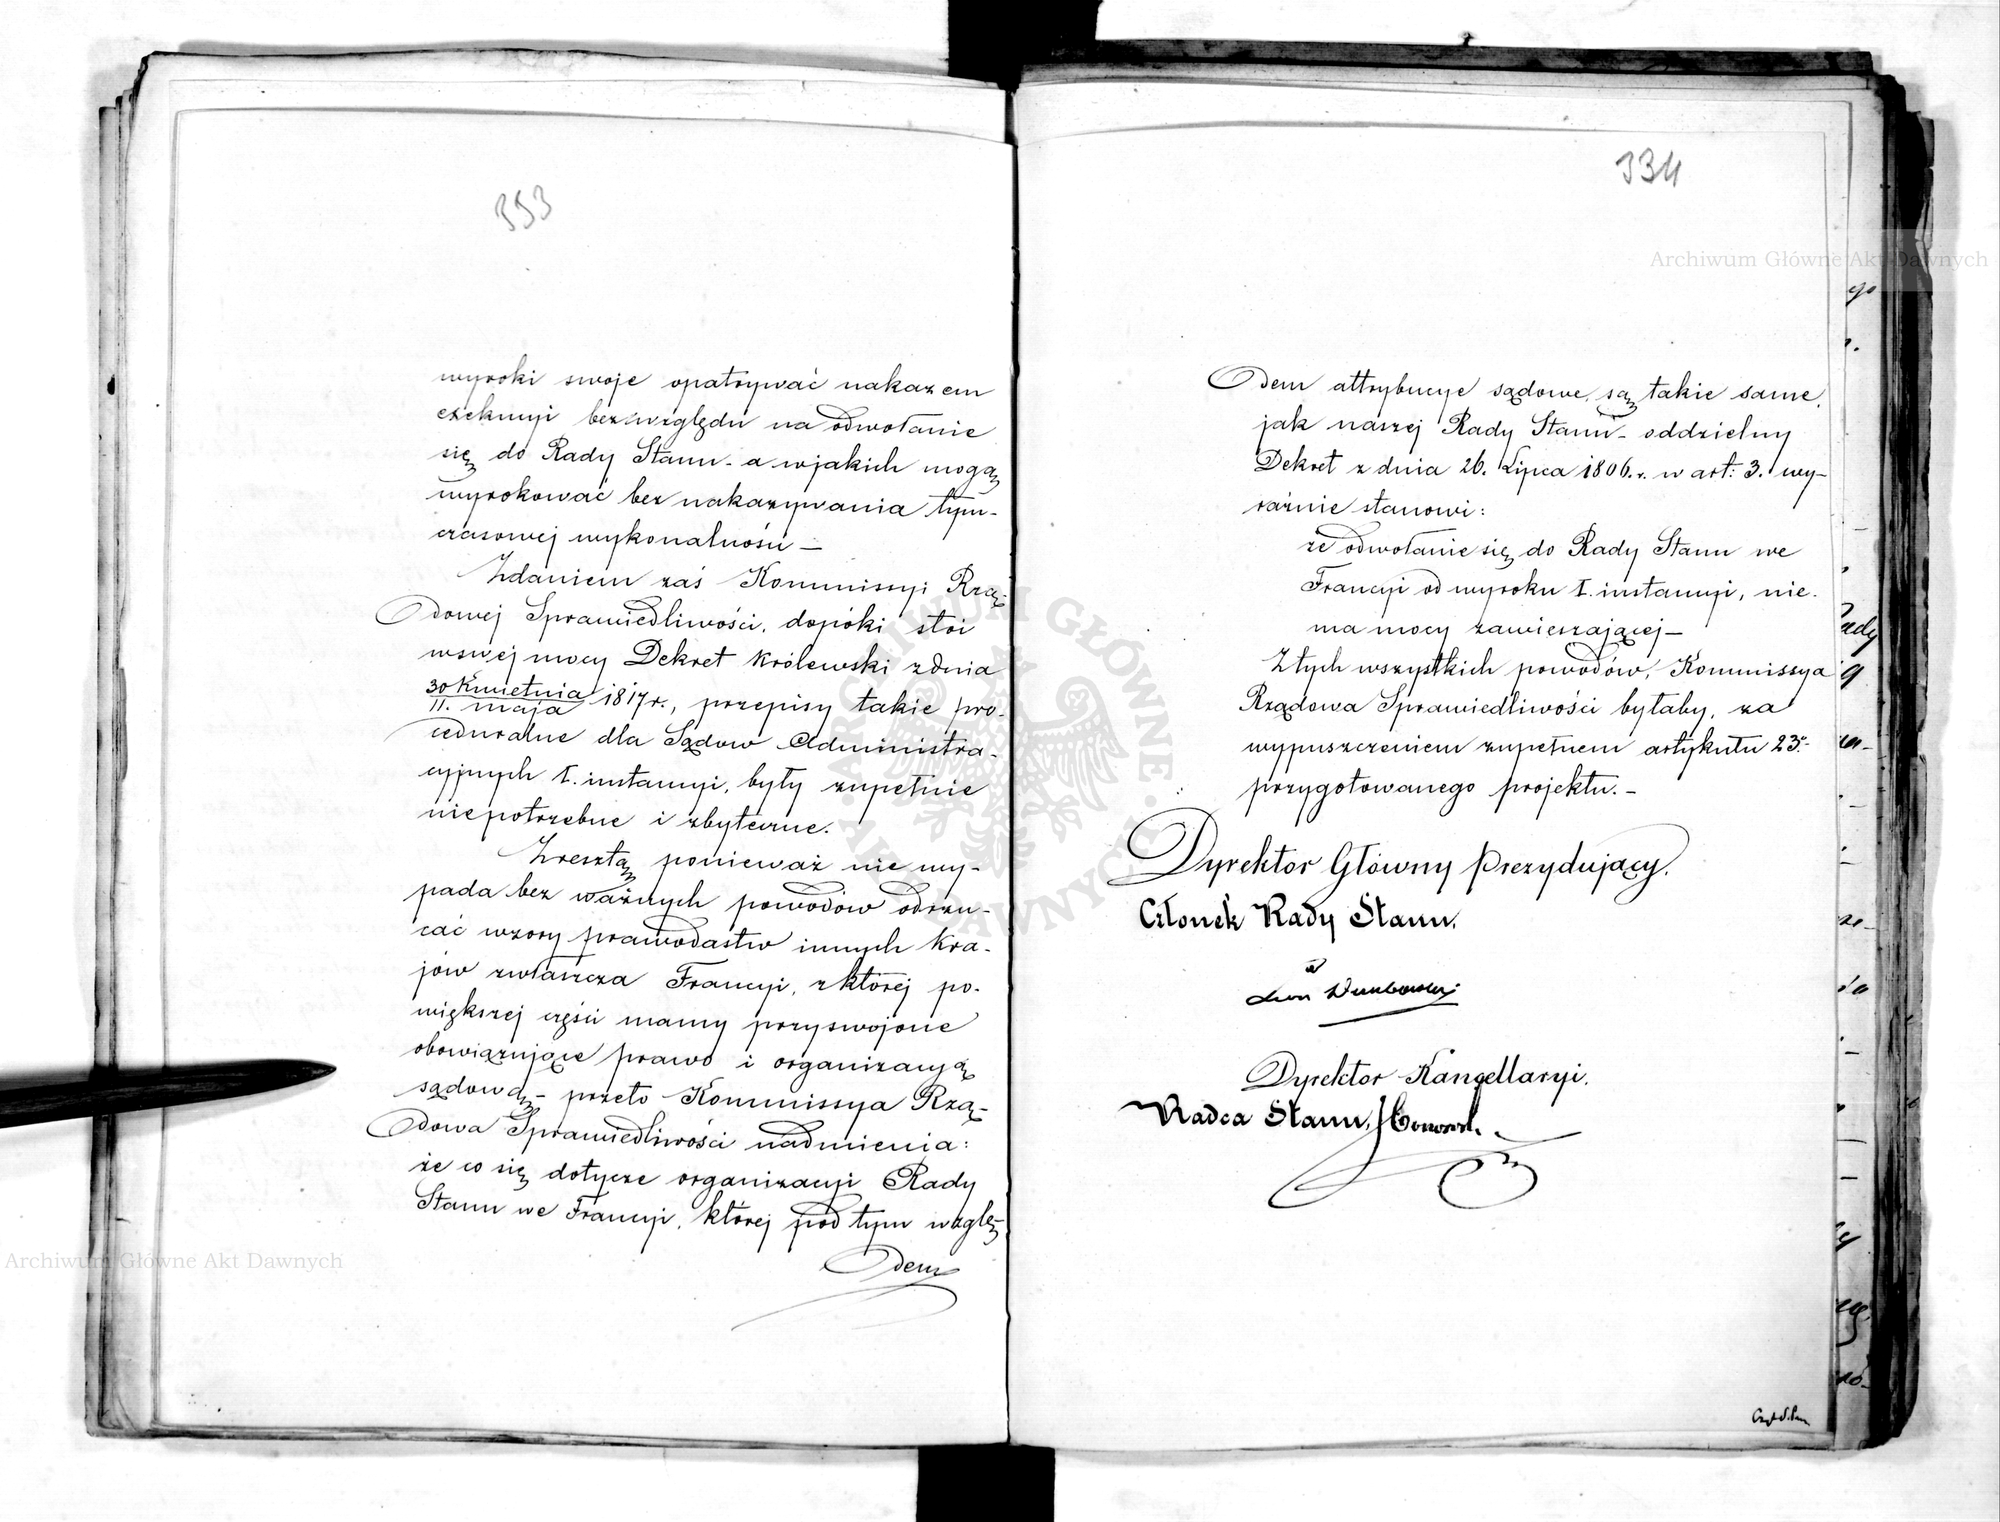 333
wyroki swoje opatrywać nakazem
exekucyi bez względu na odwołanie
się do Rady Stanu – a w jakich mogą
wyrokować bez nakazywania tym-
czasowej wykonalności –
Zdaniem zaś Kommissyi Rzą-
dowej Sprawiedliwości, dopóki stoi
w swej mocy Dekret Królewski z dnia
30 Kwietnia
11. maja 1817 r., przepisy takie pro-
ceduralne dla Sądów Administra-
cyjnych I. instancyi, były zupełnie
niepotrzebne i zbyteczne.
Zresztą, ponieważ nie wy-
pada bez ważnych powodów odrzu-
cać wzory prawodastw innych kra-
jów zwłaszcza Francyi, z której po-
większej części mamy przyswojone
obowiązujące prawo i organizacyą
sądową – przeto Kommissya Rzą-
dowa Sprawiedliwości nadmienia:
że co się dotycze organizacyi Rady
Stanu we Francyi, której pod tym wzglę-
dem
334
dem attrybucye sądowe, są takie same,
jak naszej Rady Stanu – oddzielny
Dekret z dnia 26. Lipca 1806. r. w art: 3. wy-
raźnie stanowi:
że odwołanie się do Rady Stanu we
Francyi od wyroku I. instancyi, nie
ma mocy zawieszającej –
Z tych wszystkich powodów, Kommissya
Rządowa Sprawiedliwości byłaby, za
wypuszczeniem zupełnem artykułu 23.
przygotowanego projektu. –
Dyrektor Główny Prezydujący.
Członek Rady Stanu.
Dyrektor Kancellaryi.
Radca Stanu,
Archiwum Główne Akt Dawnych
Archiwum Główne Akt Dawnych
ARCHIWUM GŁÓWNE AKT DAWNYCH